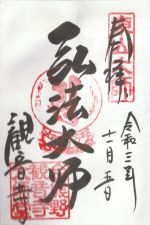 奉拝
令和三年
十一月五日
弘法大師
観音寺